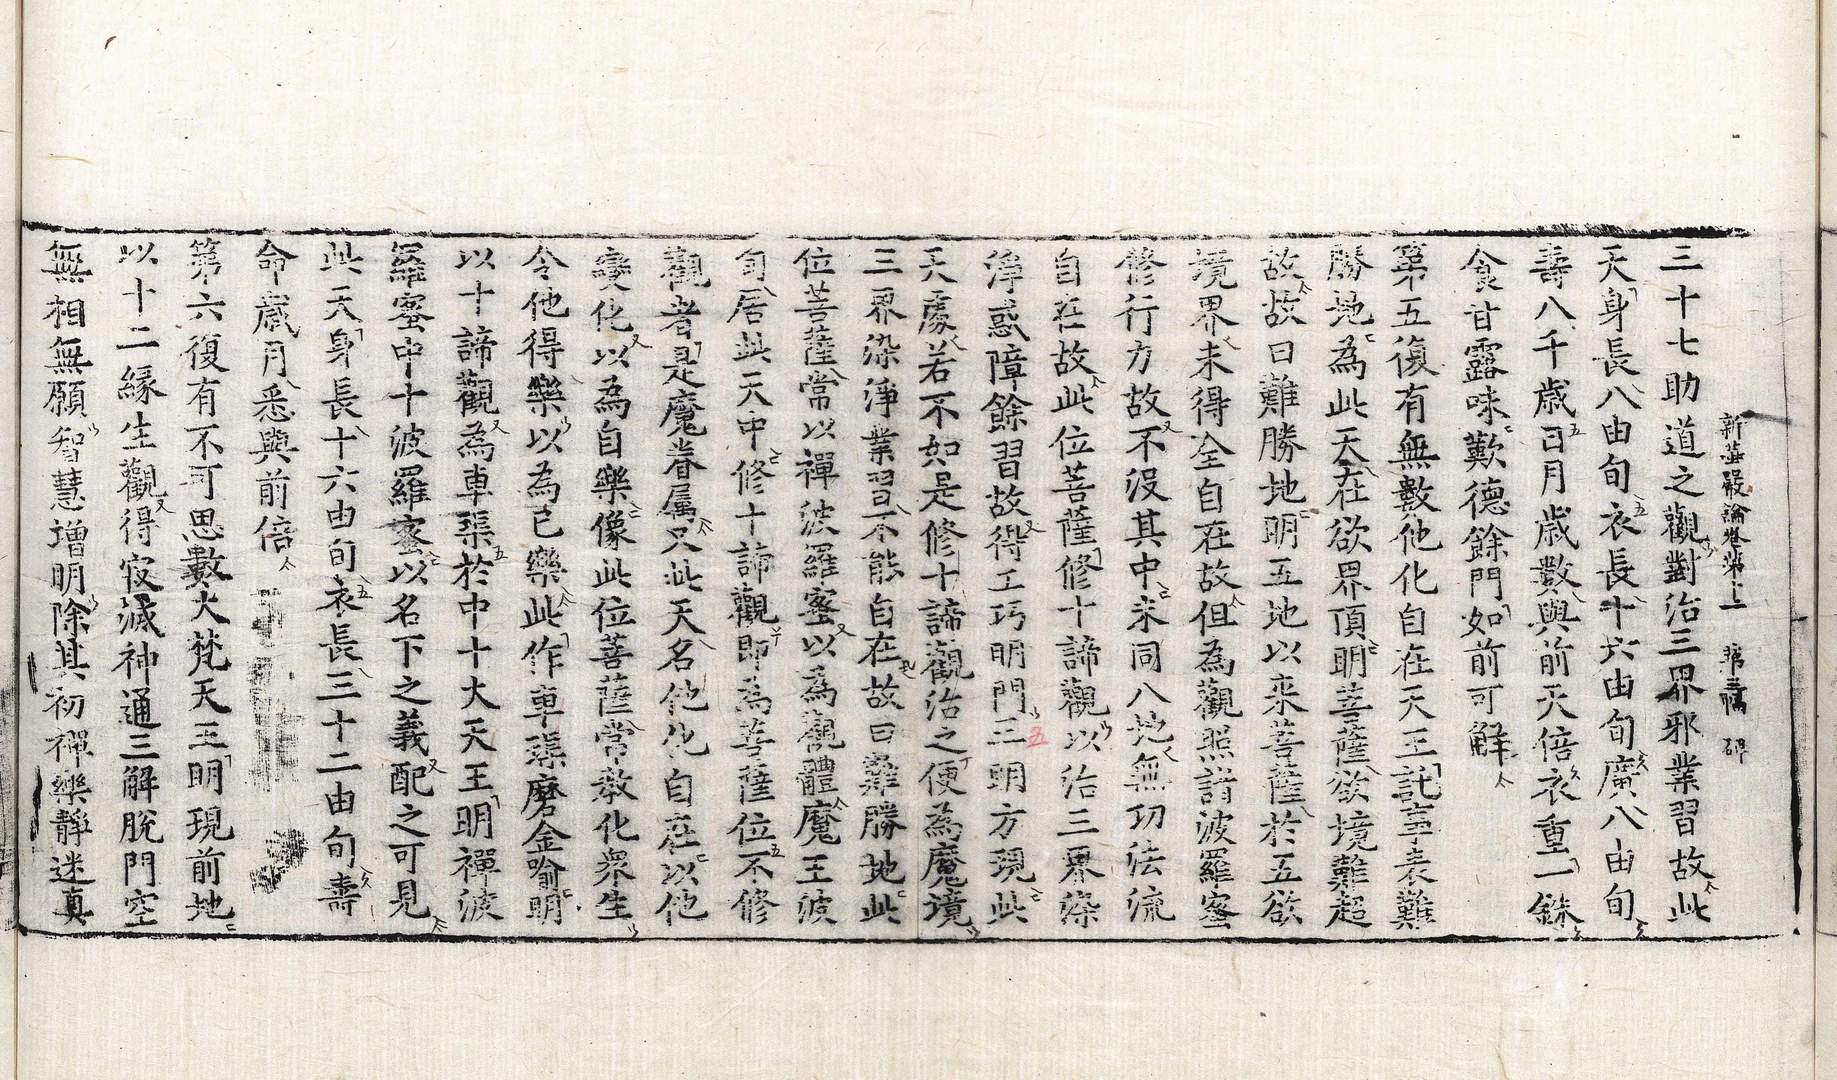 新華嚴論卷第十一 第三幅 碑
三十七助道之觀對治三界邪業習故此
天身長八由旬衣長十六由旬廣八由旬
壽八千歲日月歲數與前天倍衣重一銖
食甘露味歎德餘門如前可解
第五復有無數他化自在天王託事表難
勝地為此天在欲界頂明菩薩欲境難超
故故曰難勝地明五地以來菩薩於五欲
境界未得全自在故但為觀照諸波羅蜜
修行方故不沒其中未同八地無功法流
自在故此位菩薩修十諦觀以治三界染
淨惑障餘習故得工巧明門三明方現此
天處若不如是修十諦觀治之便為魔境
三界染淨業習不能自在故曰難勝地此
位菩薩常以禪波羅蜜以為觀體魔王波
旬居此天中修十諦觀即為菩薩位不修
觀者是魔眷属又此天名他化自在以他
變化以為自樂像此位菩薩常教化眾生
令他得樂以為己樂此作車𤦲磨金喻明
以十諦觀為車渠於中十大天王明禪波
羅蜜中十波羅蜜以名下之義配之可見
此天身長十六由旬衣長三十二由旬壽
命歲月悉與前倍
第六復有不可思數大梵天王明現前地
以十二緣生觀得寂滅神通三解脫門空
無相無願智慧增明除其初禪樂靜迷真